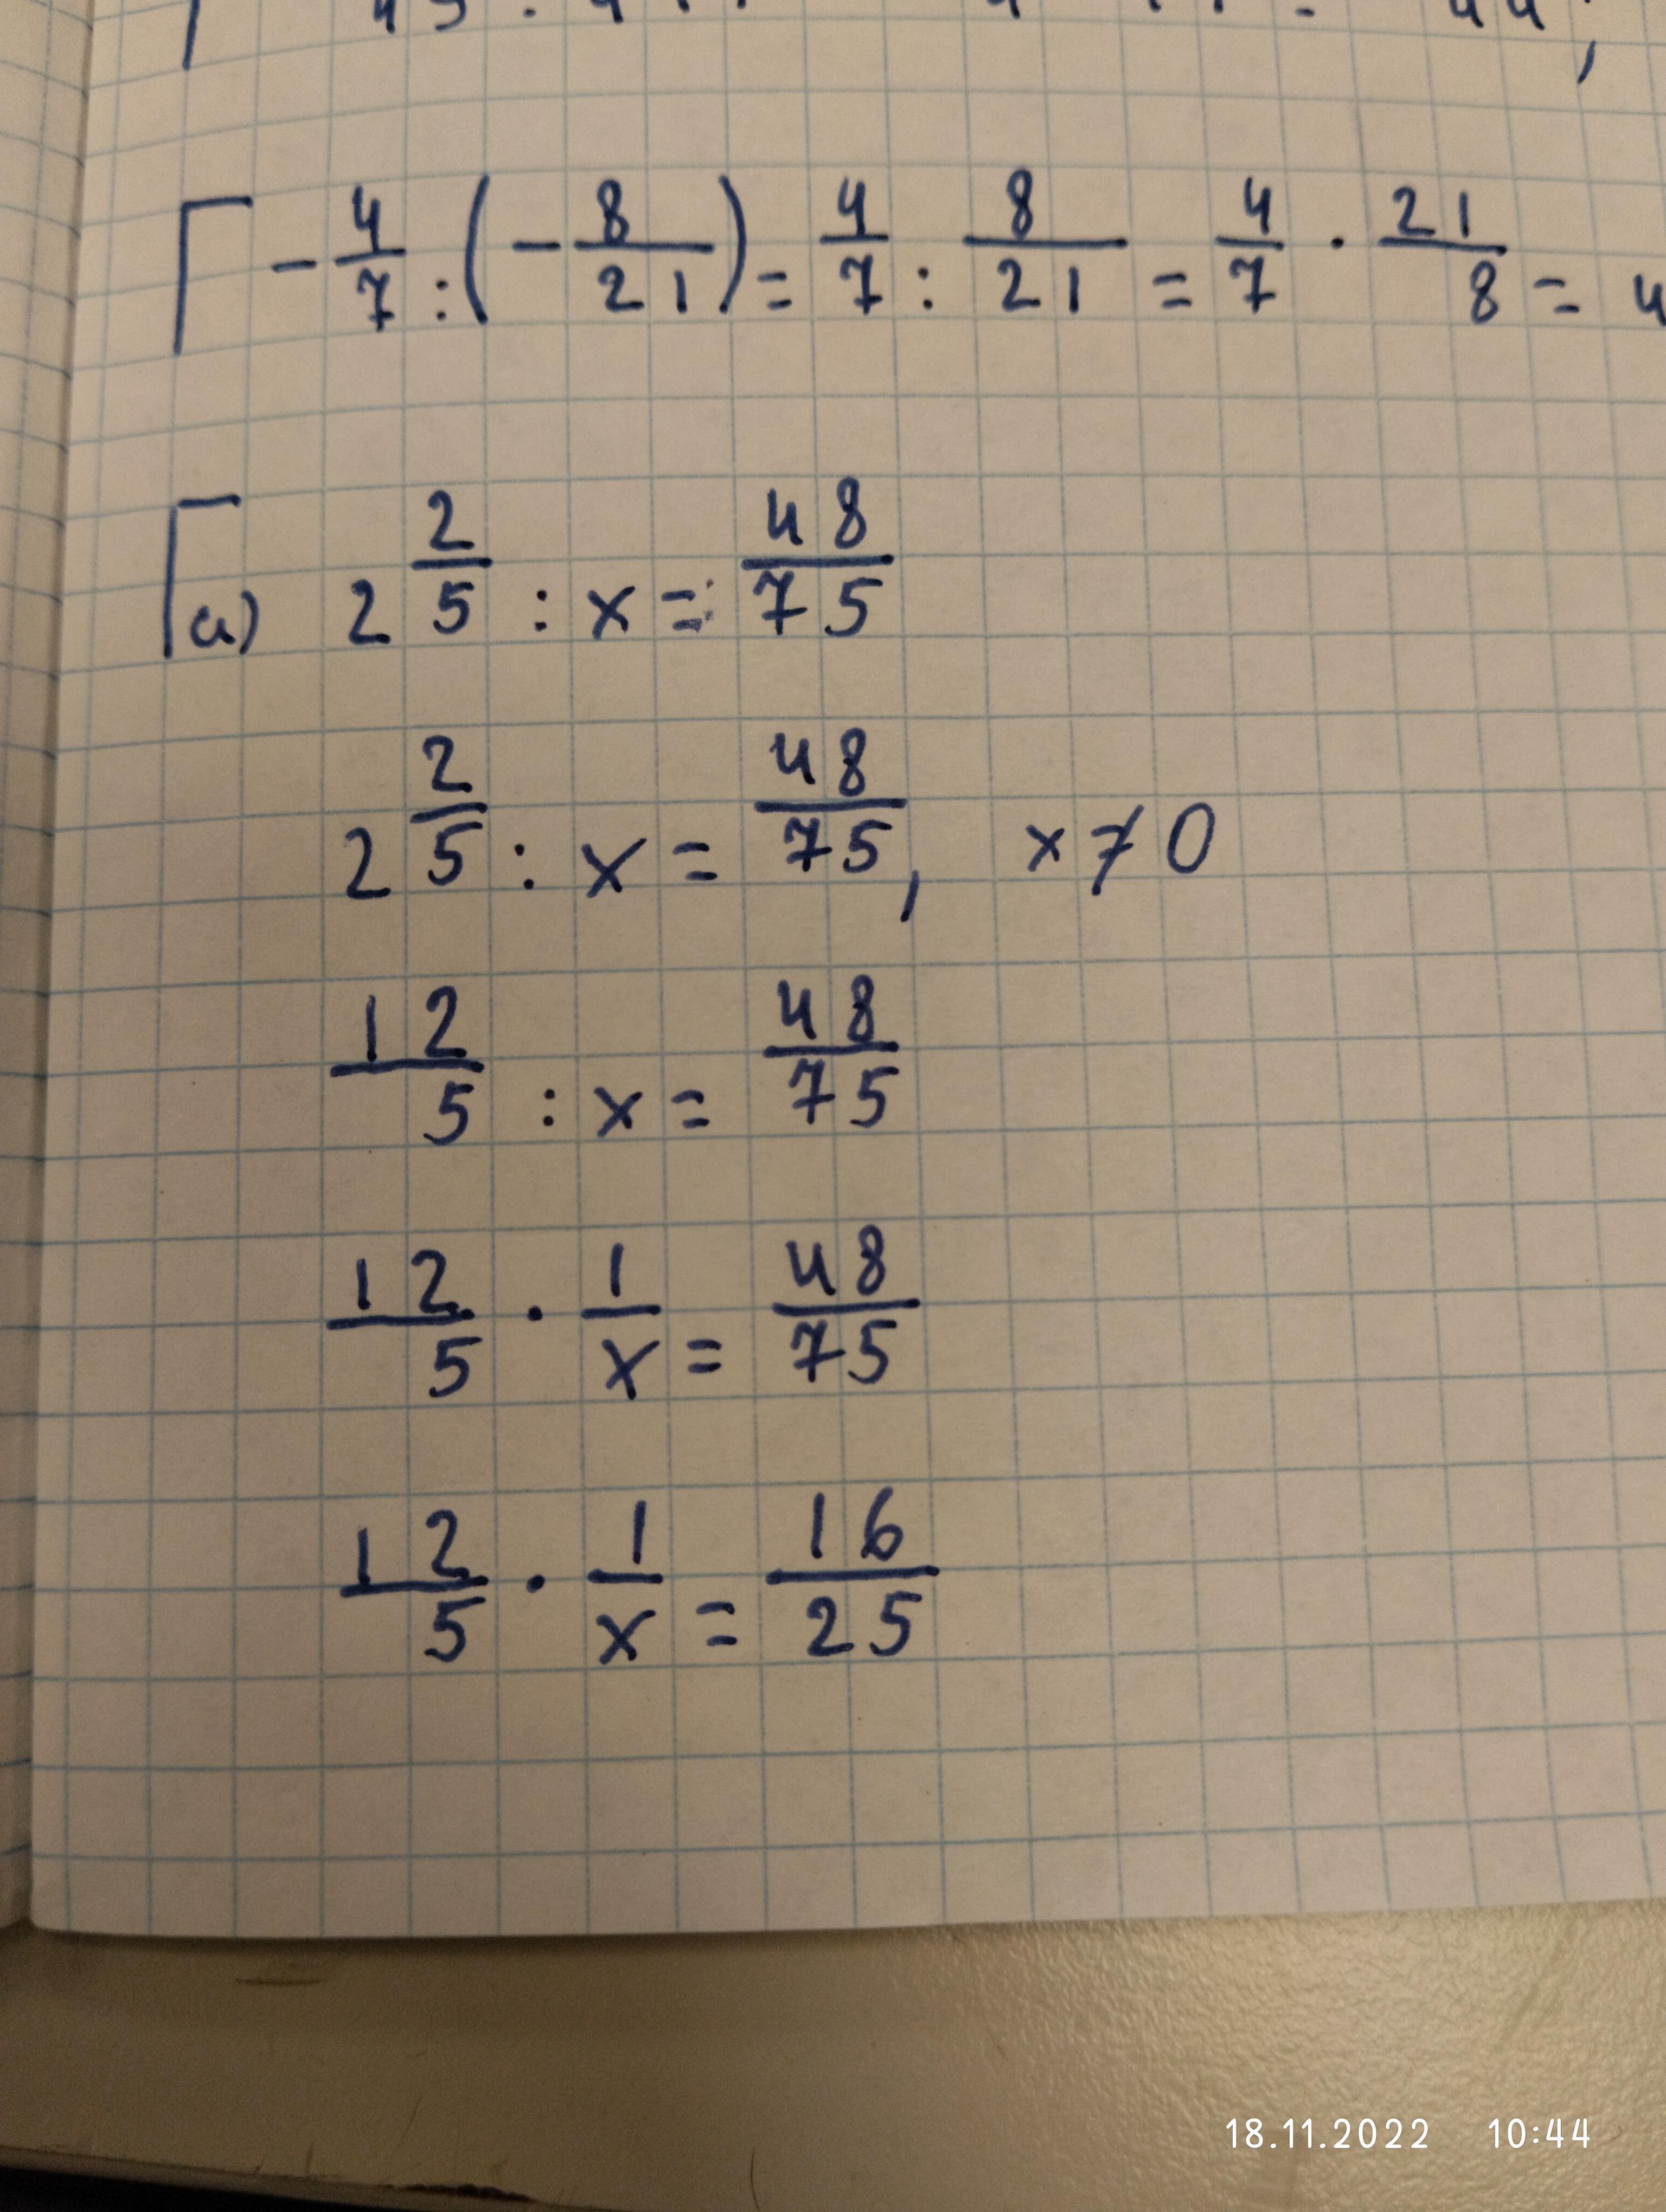 - 4/7 : (- 8/21) = 4/7 : 8/21 = 4/7 · 21/8 = 4
a) 2 2/5 : x = 48/75
2 2/5 : x = 48/75, x ≠ 0
12/5 : x = 48/75
12/5 · 1/x = 48/75
12/5 · 1/x = 16/25
18.11.2022 10:44